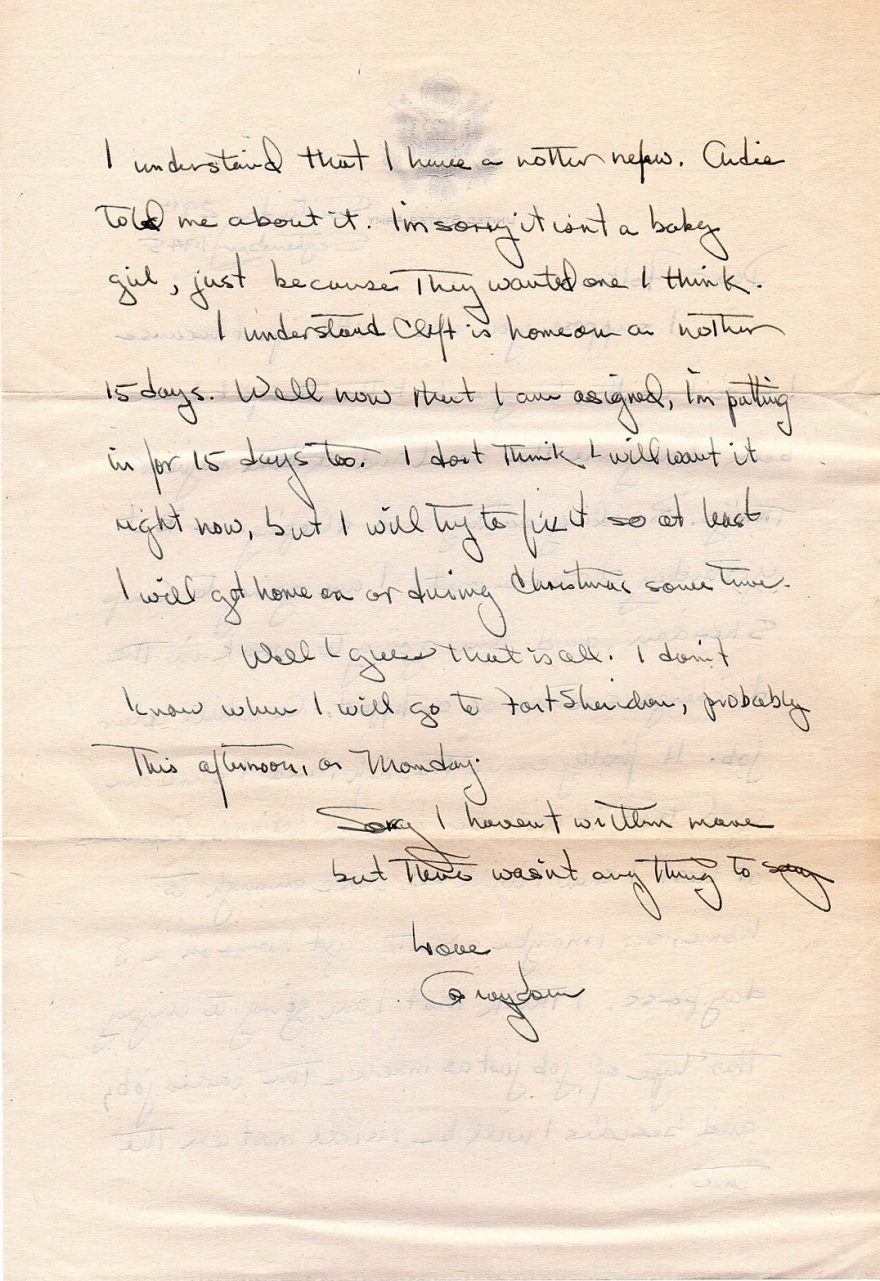 I understand that I have a nother nefew. Audie
told me about it. I'm sorry it isnt a baby
girl, just because they wanted one I think.
I understand Clift is home on a nother
15 days. Well now that I am assigned, I'm putting
in for 15 days too. I dont think I will want it
right now, but I will try to fix it so at least
I will get home on or during Christmas some time.
Well I guess that is all. I don't
know when I will go to Fort Sheridan, probably
this afternoon, or Monday.
Sorry I havent written more
but there wasn't any thing to say
Love
Graydon